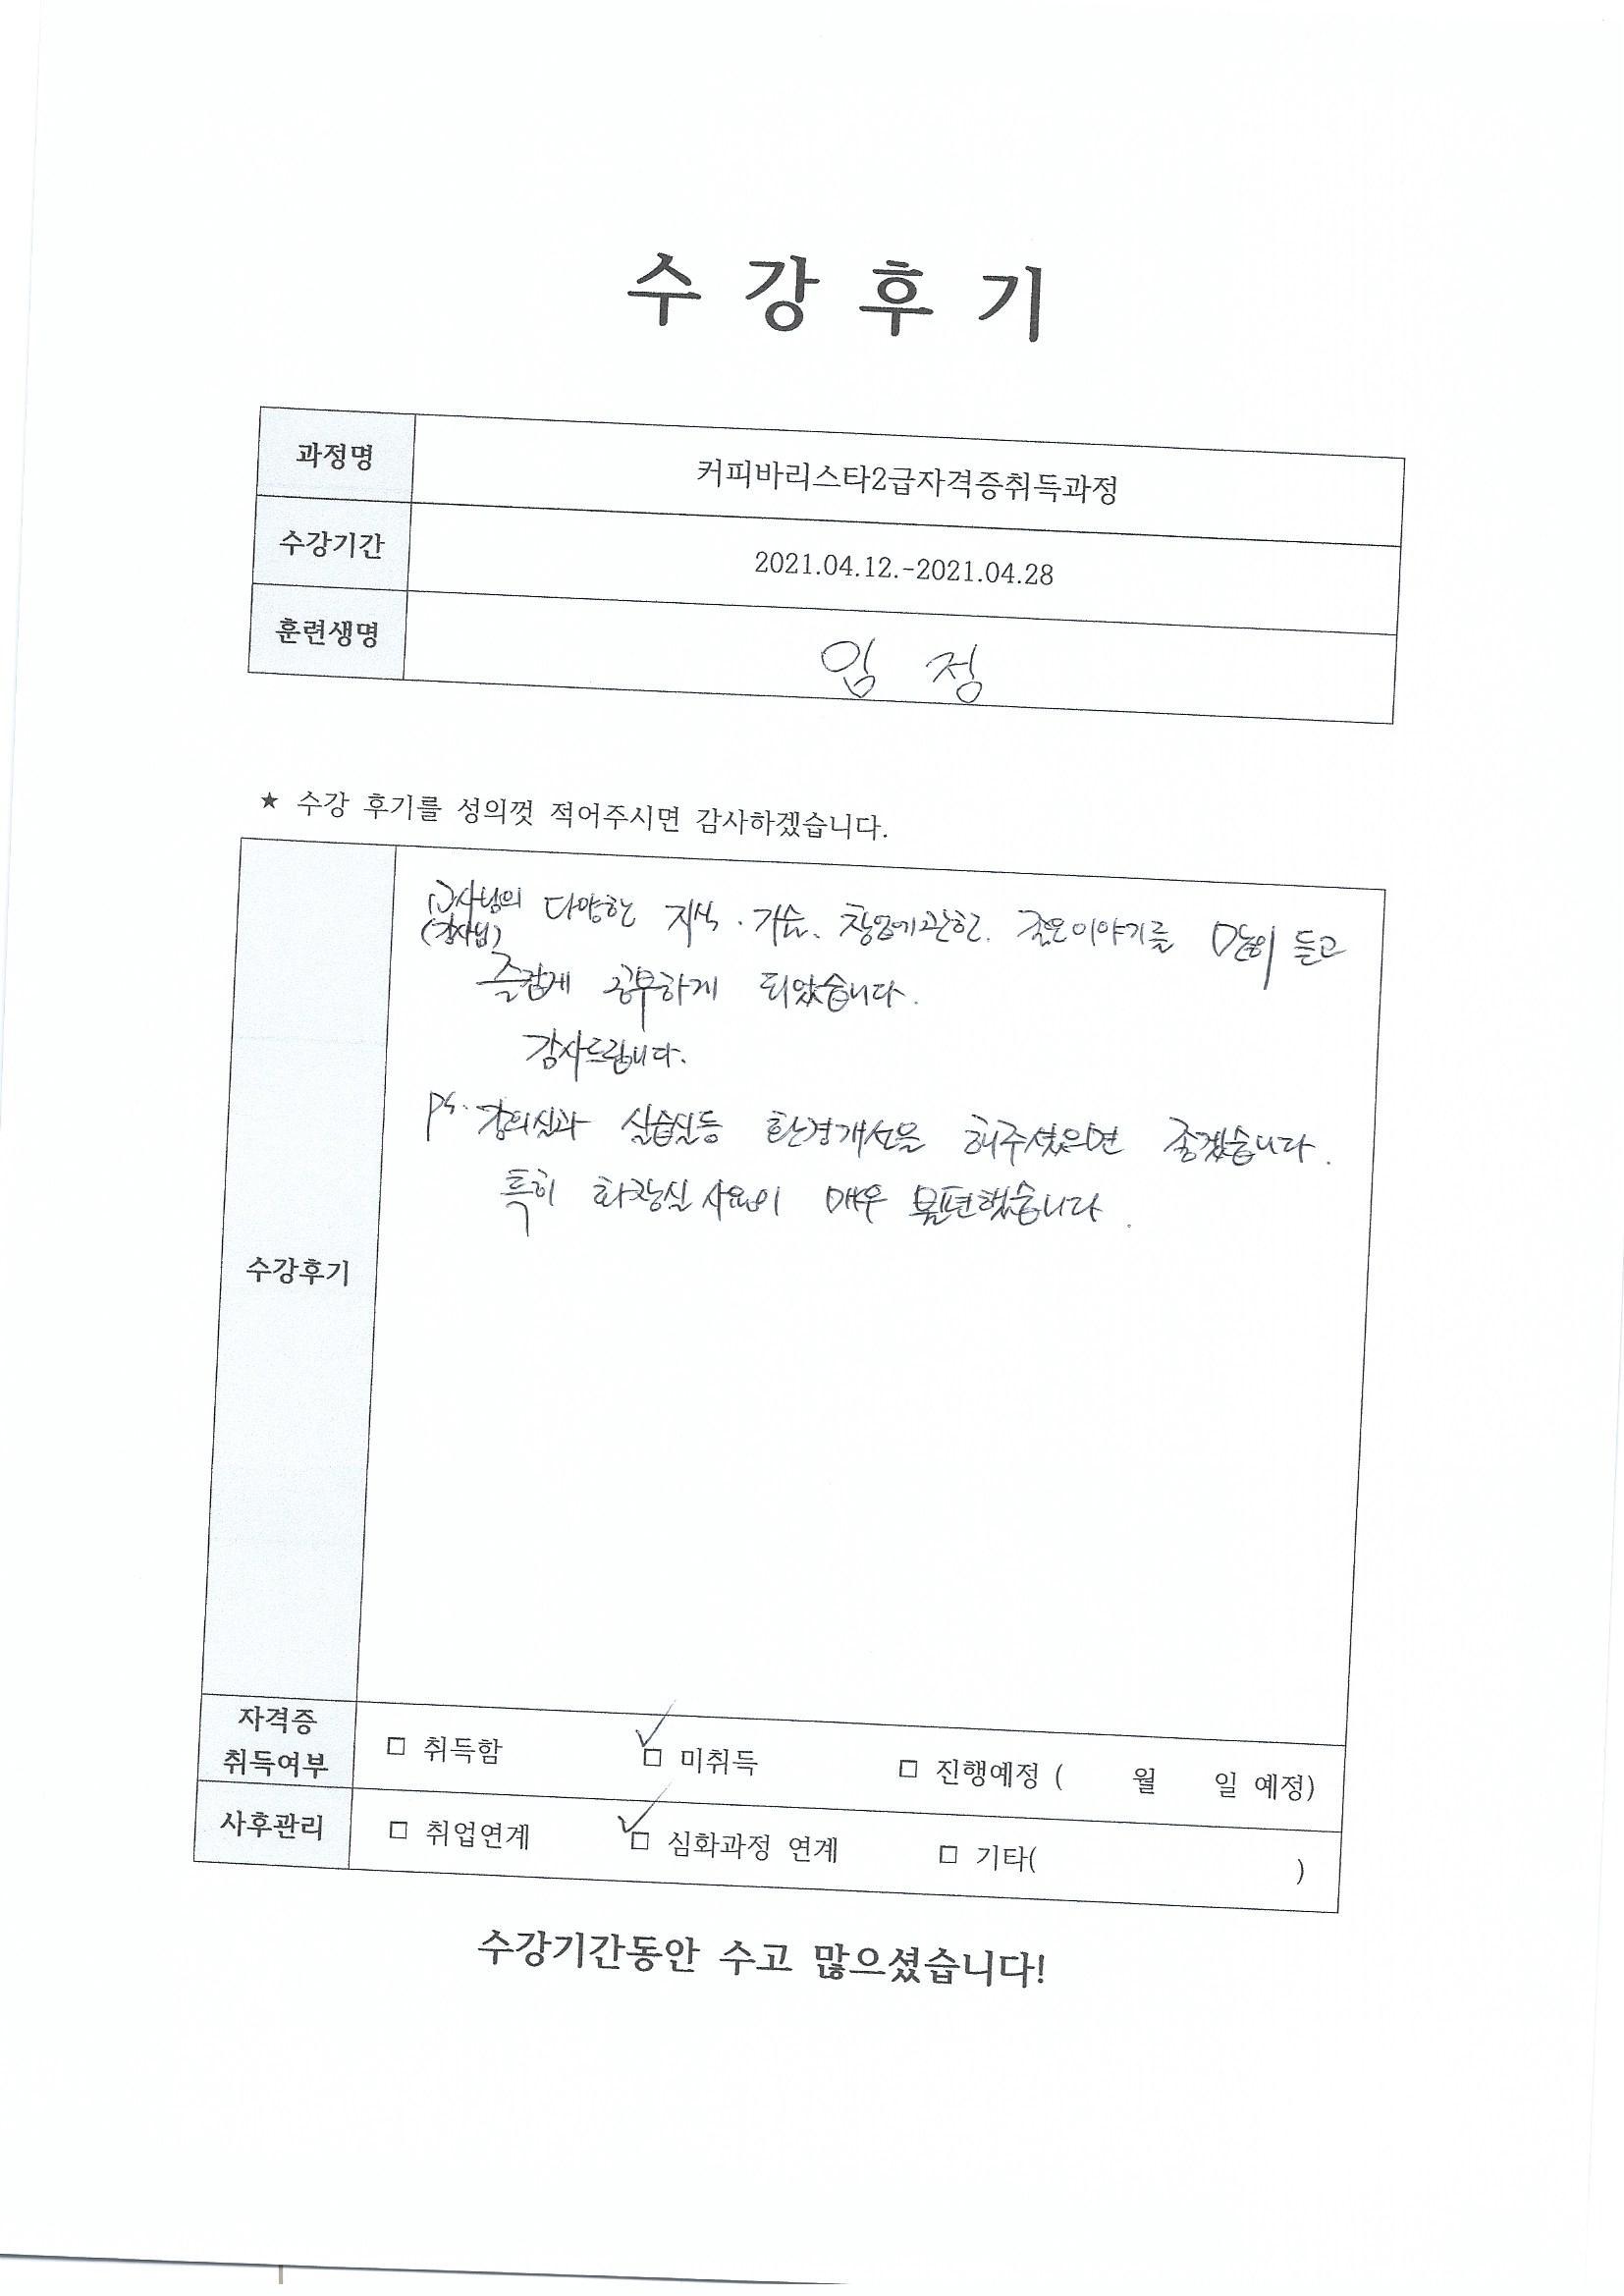 수 강 후 기
과정명 커피바리스타2급자격증취득과정
수강기간 2021.04.12.-2021.04.28
훈련생명 임 정
★ 수강 후기를 성의껏 적어주시면 감사하겠습니다.
수강후기
교사님의 다양한 지식. 기술. 창업에관한. 좋은이야기를 많이 듣고
(강사님)
즐겁게 공부하게 되었습니다.
감사드립니다.
PS. 강의실과 실습실등 환경개선을 해주셨으면 좋겠습니다.
특히 화장실 사용이 매우 불편했습니다.
자격증
취득여부 □ 취득함 □ 미취득 □ 진행예정 ( 월 일 예정)
사후관리 □ 취업연계 □ 심화과정 연계 □ 기타( )
수강기간동안 수고 많으셨습니다!